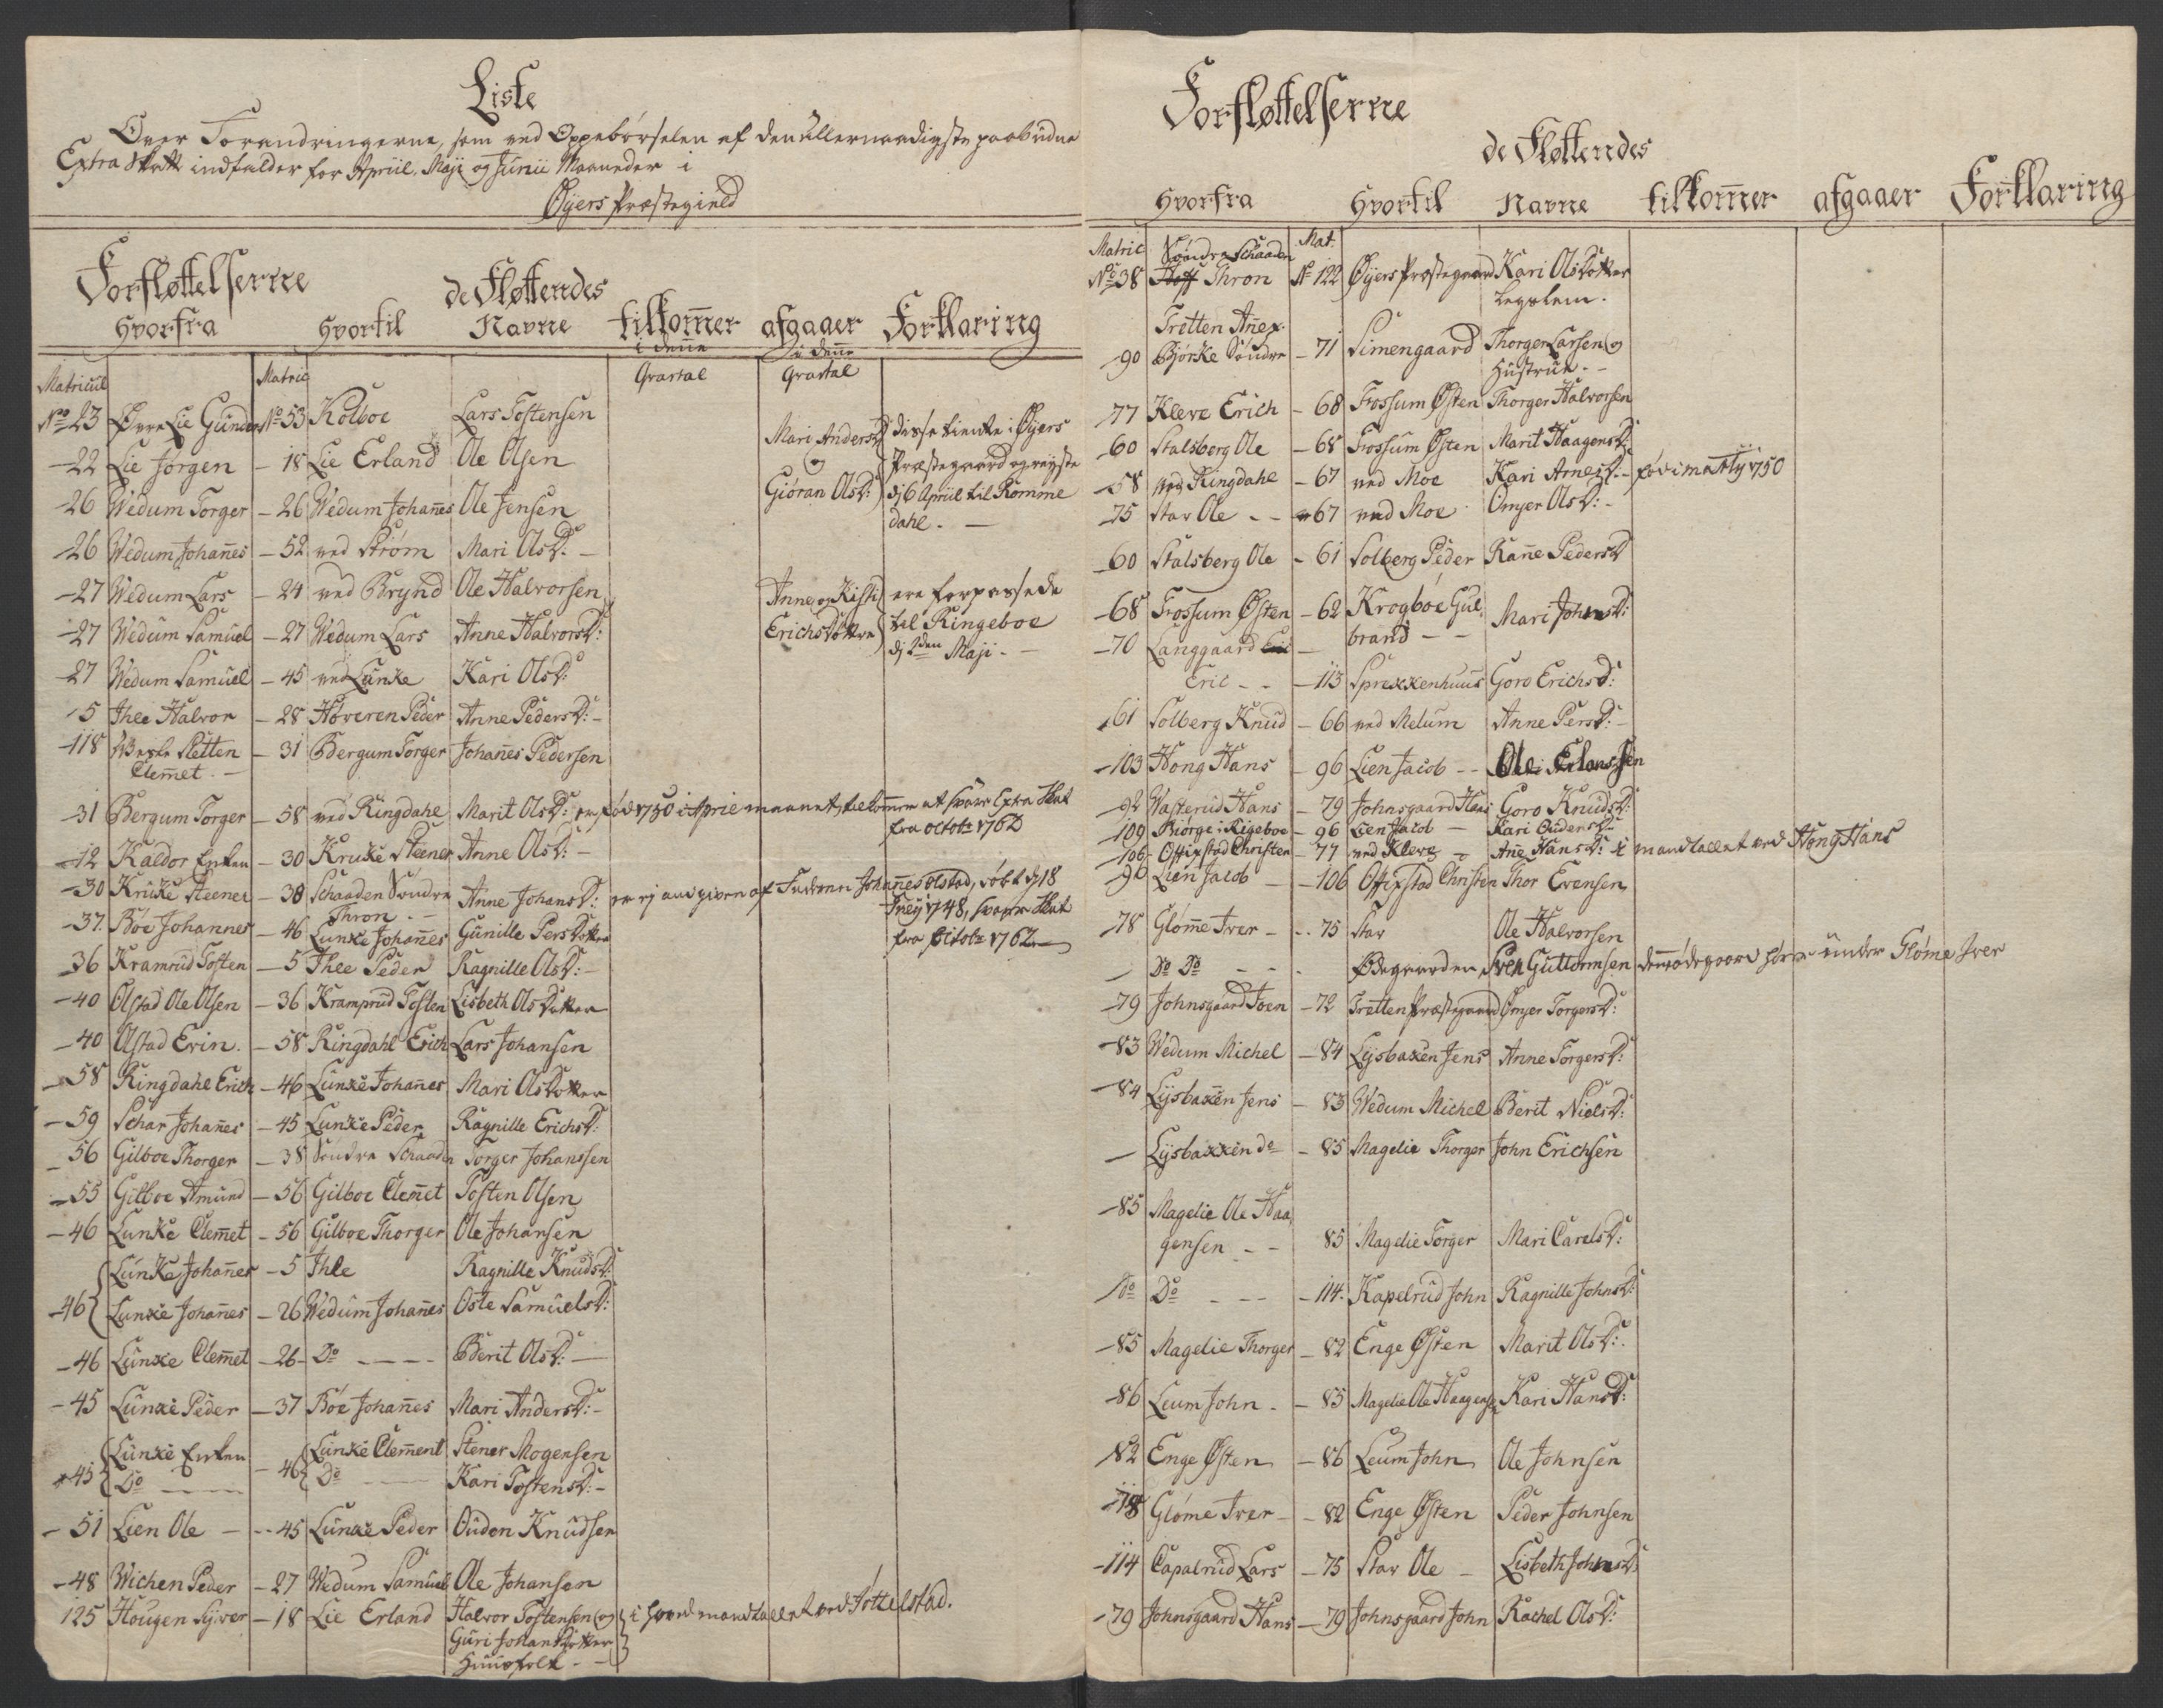 Liste
Over Forandringerne, som ved Oppebørselen af den allernaadigste paabudne
Extra Skatt indfalder for Apriil, Maji og Junii Maaneder i
Øyers Præstegield
Forfløttelserne
de Fløttendes
Hvorfra Hvortil Navne tilkom̄er afgaaer Forklaring
i deñe i deñe
Matricul Matric Qvartal Qvartal
No 23 Øvre Lie Gunder No 53 Kolboe Lars Tostensen
Mari Andersd: disse tiente i Øyers
-22 Lie Jørgen - 18 Lie Erland Ole Olsen
og Præstegaard og reyste
Giøran Olsd: d 6 Apriil til Romme
-26 Wedum Torger - 26 Wedum Johañes Ole Jensen
dahl. -
-26 Wedum Johañes - 52 ved Strøm Mari Olsd: -
-27 Wedum Lars - 24 ved Brynd Ole Halvorsen
Anne og Kisti ere forpassede
-27 Wedum Samuel - 27 Wedum Lars Anne Halvorsd:
Erichsdøttre til Ringeboe
d 2den Maji. -
-27 Wedum Samuel - 45 ved Lunke Kari Olsd:
-5 Jhle Halvor - 28 Høveren Peder Anne Pedersd: -
-118 Sletten - 31 Bergum Torger Johañes Pedersen
Clem̄et. -
-31 Bergum Torger - 58 ved Ringdahl Marit Olsd: er fød 1750 i Aprie maanet, tilkommer at svare Extra Skat
fra octobr 1762
-12 Kaldor Enken - 30 Kruke Steener Anne Olsd: -
-30 Kruke Steener - 38 Schaaden Søndre Anne Johansd: er ej angiven af Faderen Johañes Olstad, døbt d 18
Thron. - 1748, svarer Skat
-37 Bøe Johannes - 46 Lunke Johañes Gunille Persdotter
fra Octobr 1762
-36 Kramrud Tosten - 5 Jhle Peder Ragnille Olsd: -
-40 Olstad Ole Olsen - 36 Kramprud Tosten Lisbeth Olsdotter
-40 Olstad Evin. - 58 Ringdahl Erich Lars Johansen
-58 Ringdahl Erich - 46 Lunke Johañes Mari Olsdotter
-59 Schar Johañes - 45 Lunke Peder Ragnille Erichsd:
-56 Gilboe Thorger - 38 Søndre Schaaden Torger Johanssen
-55 Gilboe Amund - 56 Gilboe Clem̄et Tosten Olsen
-46 Lunke Clem̄et - 56 Gilboe Thorger Ole Johansen
Lunke Johañes - 5 Jhle Ragnille Knudsd:
-46 Lunke Johañes - 26 Wedum Johañes Oste Samuelsd:
-46 Lunke Clem̄et - 26 - Do - - - - Berit Olsd: -
-45 Lunke Peder - 37 Bøe Johañes Mari Andersd: -
Lunke Enken Lunke Clement Stener Mogensen
-45 Do - - - - 46 Do - - Kari Tostensd: -
-51 Lien Ole - - 45 Lunke Peder Ouden Knudsen
-48 Wichen Peder - 27 Wedum Samuel Ole Johansen
125 Hougen Syver - 18 Lie Erland Halvor Tostensen og
Guri Johansdotter
Huusfolk - -
i hoved mandtallet ved Jøttelstad.
Forfløttelserne
de Fløttendes
Hvorfra Hvortil Navne tilkom̄er afgaaer Forklaring
Matric Søndre Schaaden Mat.
No 38 Thron No 122 Øyers Præstegaard Kari Olsdotter
Legslem.
Tretten Añex.
-90 Bjørke Søndre - 71 Simengaard Thorger Larsen og
Hustrue. -
-77 Kleve Erich - 68 Fossum Østen Thorger Halvorsen
-60 Stalsberg Ole - 68 Fossum Østen Marit Haagensd:
-58 ved Ringdahl - 67 ved Moe Kari Arnesd: - fød i 1750
-75 Stav Ole - - 67 ved Moe Omjer Olsd: -
-60 Stalsberg Ole - 61 Solberg Peder Rañe Pedersd
-68 Fossum Østen - 62 Krogboe Gul Mari Johnsd:
brand - -
-70 Langgaard -
Eric - - - 113 Sprekkenhuus Goro Erichsd:
-61 Solberg Knud - 66 ved Melum Anne Persd: -
-103 Hong Hans - 96 Lien Jacob - - Ole Erlandssen
-92 Wasterud Hans - 79 Johnsgaard Hans Goro Knudsd:
-109 Biørge i Rigeboe - 96 Lien Jacob - Kari Oudensd:
-106 Offixstad Christen - 77 ved Kleve - Añe Hansd: i mandtallet ved Hong Hans
-96 Lien Jacob - - 106 Offixstad Christen Thor Evensen
-78 Gløm̄e Iver - - 75 Stav Ole Halvorsen
- Do Do - - - Ødegaarden Sven Guttormsen den̄e ødegaard hører under Gløme Iver
-79 Johnsgaard Joen - 72 Tretten Præstegaard Omjer Torgersd:
-83 Wedum Michel - 84 Lysbaken Jens Anne Torgersd:
-84 Lysbaken Jens - 83 Wedum Michel Berit Nielsd:
- Lysbakken do - 85 Magelie Thorger John Erichsen
-85 Magelie Ole Haa
gensen - - 85 Magelie Torger Mari Carelsd:
Do Do - - - 114. Kapelrud John Ragnille Johnsd:
-85 Magelie Thorger - 82 Enge Østen Marit Olsd:
-86 Leum John - - 85 Magelie Ole Haagensen Kari Hansd:
-82 Enge Østen - 86 Leum John Ole Johnsen
-78 Gløme Iver - - 82 Enge Østen Peder Johnsen
-114 Capalrud Lars - 75 Stav Ole - Lisbeth Johnsd:
-79 Johnsgaard Hans - 79 Johnsgaard John Rachel Olsd: